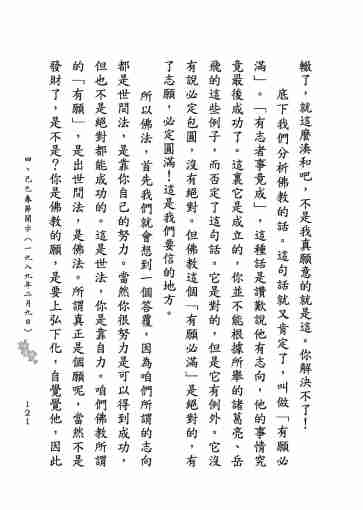 轍了，就這麼湊和吧，不是我真願意的就是這。你解決不了！
底下我們分析佛教的話。這句話就又肯定了，叫做「有願必
滿」。「有志者事竟成」，這種話是讚歎說他有志向，他的事情究
竟最後成功了。這裏它是成立的，你並不能根據所舉的諸葛亮、岳
飛的這些例子，而否定了這句話。它是對的，但是它有例外。它沒
有說必定包圓，沒有絕對。但佛教這個「有願必滿」是絕對的，有
了志願，必定圓滿！這是我們要信的地方。
所以佛法，首先我們就會想到一個答覆，因為咱們所謂的志向
都是世間法，是靠你自己的努力。當然你很努力是可以得到成功，
但也不是絕對都能成功的。這是世法，你是靠自力。咱們佛教所謂
的「有願」，是出世間法，是佛法。所謂真正是個願呢，當然不是
發財了，是不是？你是佛教的願，是要上弘下化，自覺覺他，因此
四、己巳春節開示（一九八九年二月九日）
121